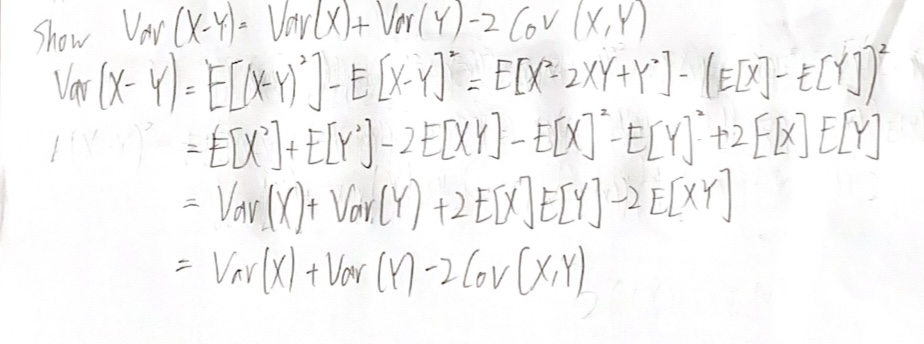 Show Var(X-Y) = Var(X) + Var(Y) - 2 Cov (X,Y)
Var(X-Y) = E[(X-Y)²] - E[X-Y]² = E[X²-2XY+Y²] - (E[X]-E[Y])²
= E[X²] + E[Y²] - 2E[XY] - E[X]² - E[Y]² + 2E[X]E[Y]
= Var(X) + Var(Y) + 2E[X]E[Y] - 2E[XY]
= Var(X) + Var(Y) - 2Cov(X,Y)